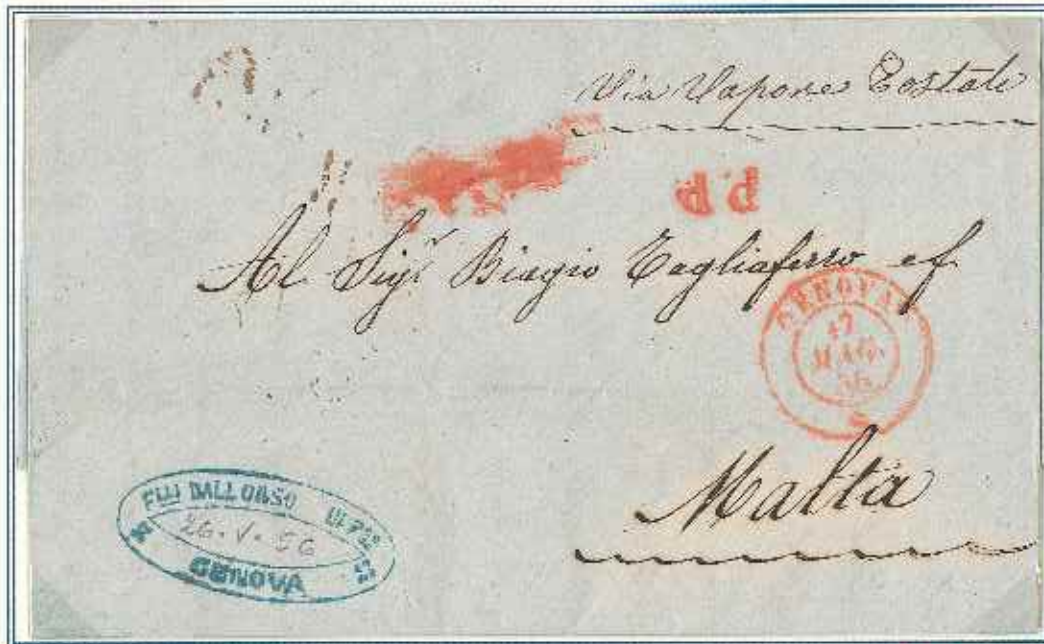 Via Vapore Postale
P.P
Al Sigr Biagio Tagliaferro
GENOVA
MAG.
56
Malta
FLLI DALL ORSO
26. V. 56
GENOVA